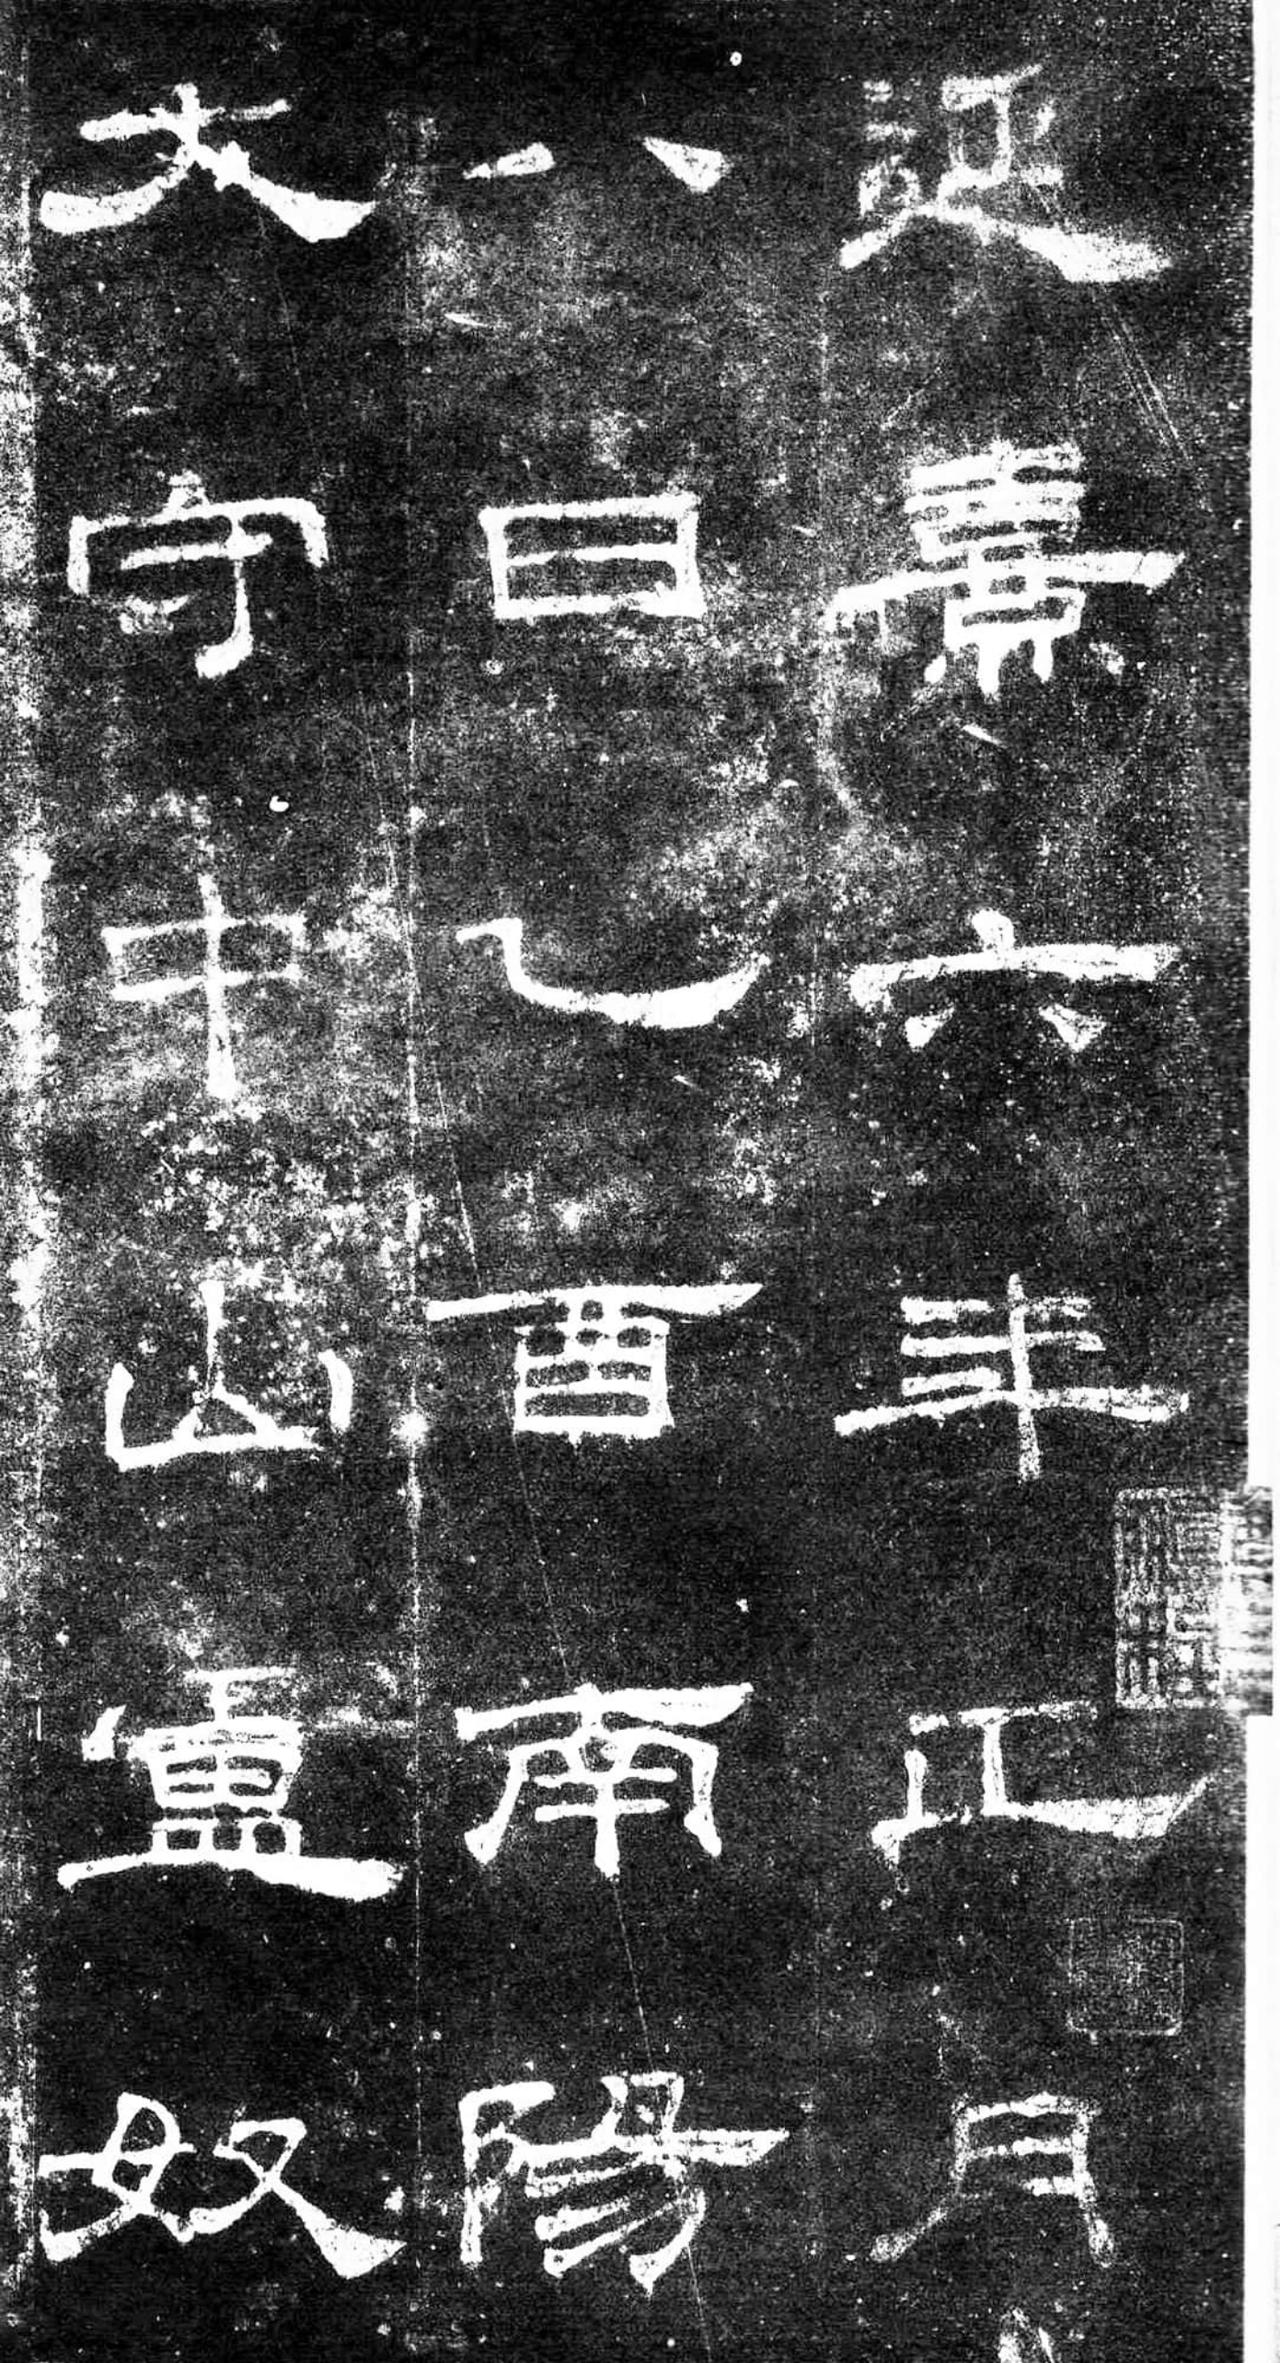 延熹六年正月
八日乙酉南陽
大守中山盧奴